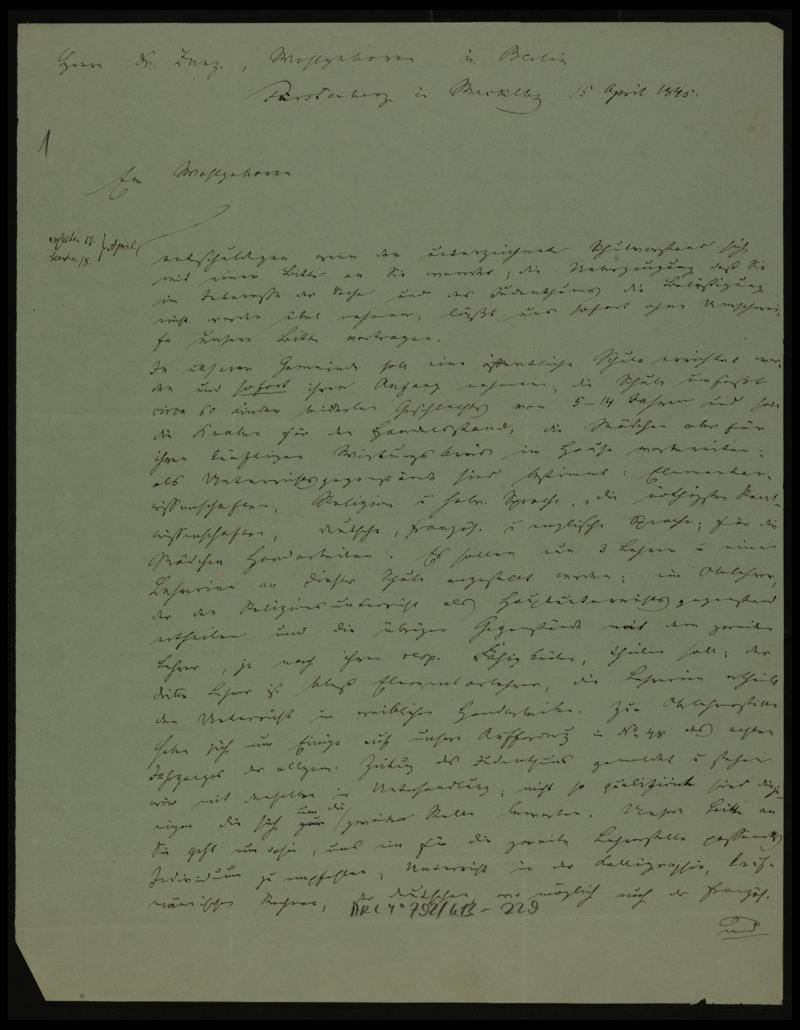 Herrn Dr. Zunz, Wohlgeboren in Berlin
Fürstenberg in Mecklbg 15 April 1845.
1
Ew Wohlgeboren
erhalten 17. April
beantw. 18.
entschuldigen wenn der unterzeichnete Schulvorstand sich
mit einer Bitte an Sie wendet; die Ueberzeugung daß Sie
im Interesse der Sache und des Judenthums die Belästigung
nicht werden übel nehmen, läßt uns sofort ohne Umschwei-
fe unsere Bitte vortragen.
In unserer Gemeinde soll eine öffentliche Schule errichtet wer-
den und sofort ihren Anfang nehmen; die Schule umfaßt
circa 60 Kinder beiderlei Geschlechts von 5-14 Jahren und soll
die Knaben für den Handelsstand, die Mädchen aber für
ihren künftigen Wirkungskreis im Hause vorbereiten;
als Unterrichtsgegenstände sind bestimmt: Elementar-
wissenschaften, Religion u hebr. Sprache, die nöthigsten Real-
wissenschaften, deutsche, französ. u englische Sprache; für die
Mädchen Handarbeiten. Es sollen nun 3 Lehrer u eine
Lehrerin an dieser Schule angestellt werden; ein Oberlehrer,
der den Religionsunterricht als Hauptunterrichtsgegenstand
ertheilen und die übrigen Gegenstände mit dem zweiten
Lehrer, je nach ihren resp. Fähigkeiten, theilen soll; der
dritte Lehrer ist bloß Elementarlehrer, die Lehrerin ertheilt
den Unterricht in weiblichen Handarbeiten. Zur Oberlehrerstelle
haben sich nun Einige auf unsere Aufforderg in No 48 des achten
Jahrganges der allgem. Zeitung des Judenthums gemeldet u stehen
wir mit denselben in Unterhandlung; nicht so qualifizirte sind diejе-
nigen die sich um die zweite Stelle bewerben. Unsere Bitte an
Sie geht nun dahin, uns ein für die zweite Lehrerstelle passendes
Individuum zu empfehlen; Unterricht in der Kalligraphie, kauf-
männischen Rechnen, der deutschen wo möglich auch der französ.
ARC 4° 792/G13 - 229
und